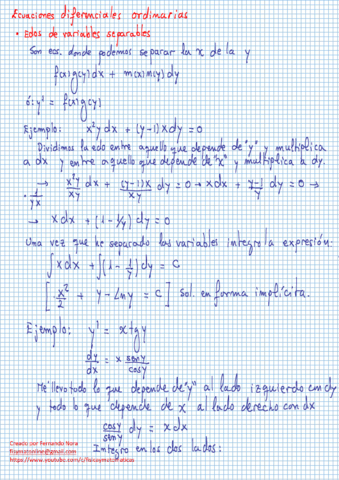 Ecuaciones diferenciales ordinarias
• Edos de variables separables
Son ecs. donde podemos separar la x de la y
f(x)g(y)dx + m(x)n(y)dy
ó: y' = f(x)g(y)
Ejemplo: x²y dx + (y-1)x dy = 0
Dividimos la edo entre aquello que depende de "y" y multiplica
a dx y entre aquello que depende de "x" y multiplica a dy.
→ x²y/xy dx + (y-1)x/xy dy = 0 → x dx + y-1/y dy = 0 →
· 1/yx
→ x dx + (1 - 1/y) dy = 0
Una vez que he separado las variables integro la expresión:
∫x dx + ∫(1 - 1/y) dy = C
[x²/2 + y - Ln y = C] Sol. en forma implícita.
Ejemplo: y' = x tg y
dy/dx = x sen y/cos y
Me llevo todo lo que depende de "y" al lado izquierdo con dy
y todo lo que depende de x al lado derecho con dx
cos y/sen y dy = x dx
Creado por Fernando Nora
fiqmatonline@gmail.com
Integro en los dos lados: